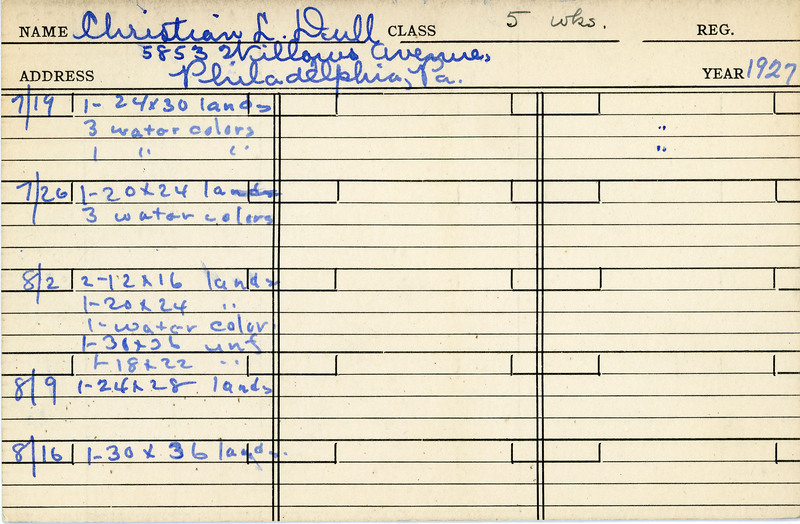 NAME Christian L. Dull CLASS 5 wks. REG.
5853 Willows Avenue,
ADDRESS Philadelphia, Pa. YEAR 1927
7/19 1- 24x30 lands
3 water colors "
1 " " "
7/26 1-20x24 lands
3 water colors
8/2 2-12x16 lands
1-20x24 "
1-water color
1-30x36 unf
1-18x22 "
8/9 1-24x28 lands
8/16 1-30x36 lands.